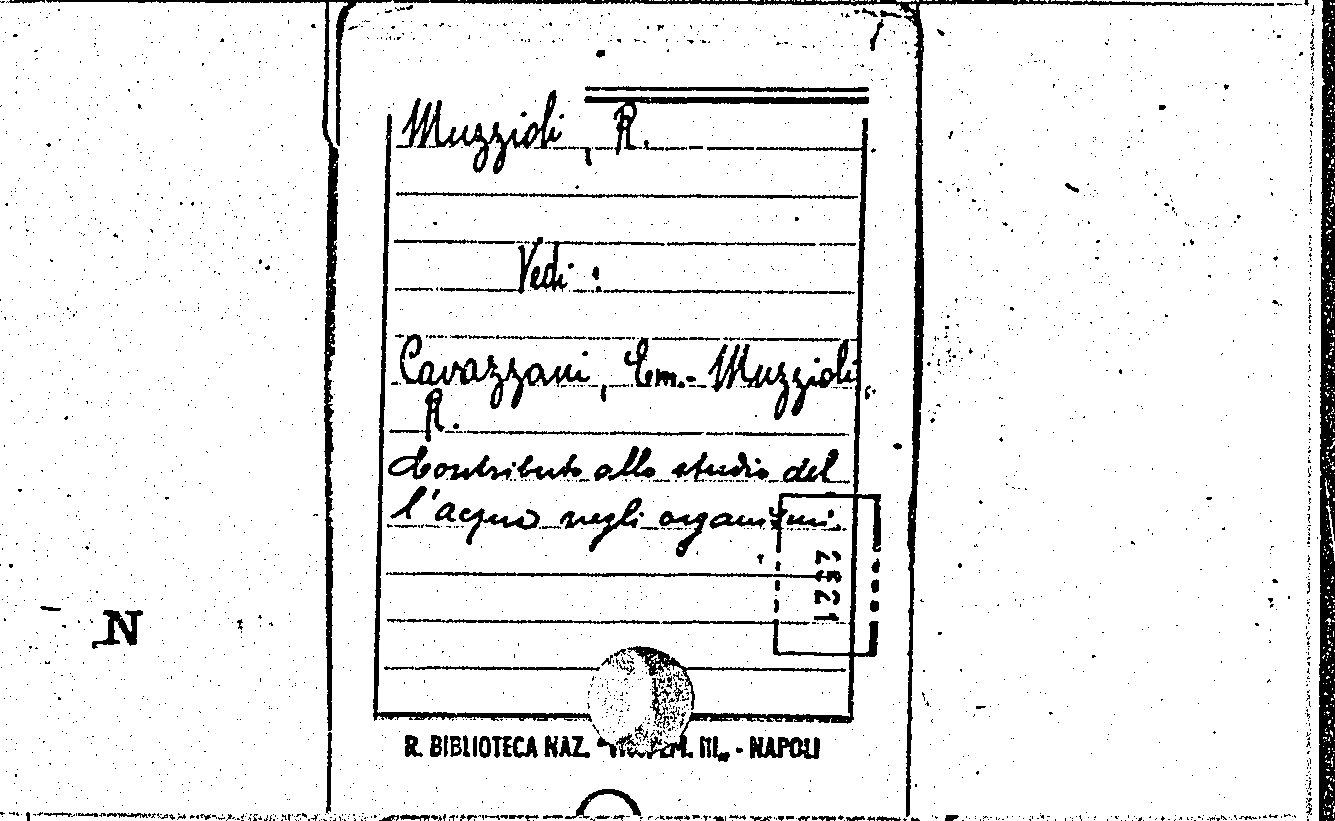 Muzzioli, R.
Vedi:
Cavazzani, Em.- Muzzioli,
R.
Contributo allo studio del
l'acqua negli organismi.
2521
N
R. BIBLIOTECA NAZ. EM. III„ - NAPOLI